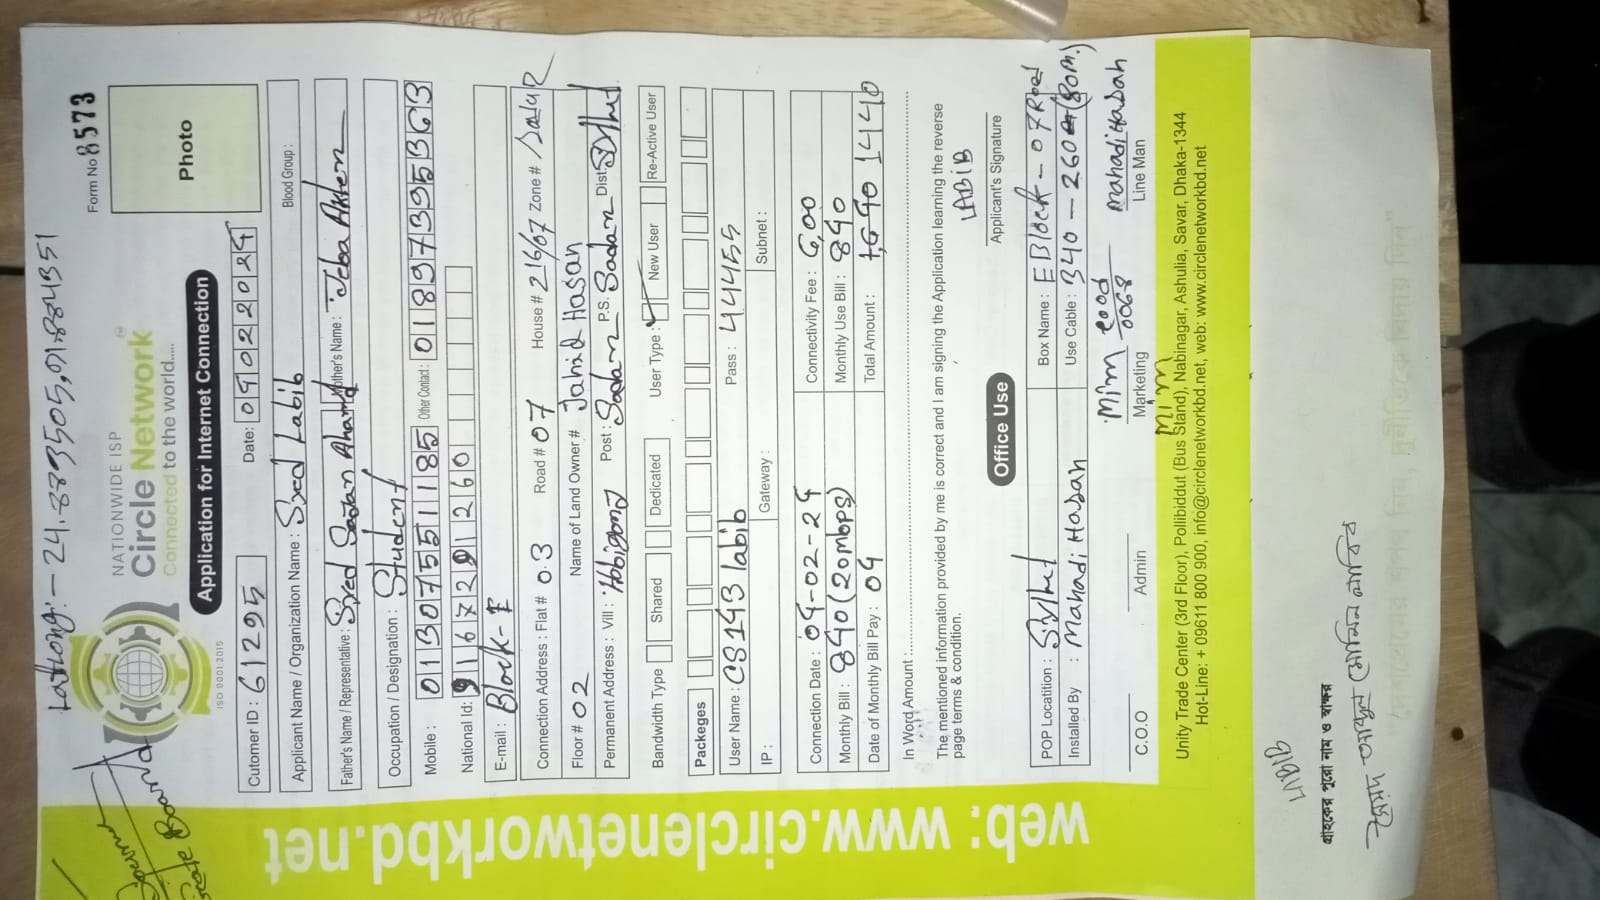 Form No 8573
NATIONWIDE ISP
Circle Network
Connected to the world.....
ISO 9001:2015
Application for Internet Connection
Photo
Cutomer ID : 61295 Date:
Applicant Name / Organization Name : Syed Labib Blood Group :
Father's Name / Representative : Syed Ahamd Mother's Name : Jeba Akter
Occupation / Designation : Student
Mobile : 01307551185 Other Contact : 01897395363
National Id:
E-mail : Block-E
Connection Address : Flat # 03 Road # 07 House # 216/07 Zone #
Floor # 02 Name of Land Owner # Jahid Hasan
Permanent Address : Vill : Hobigonj Post : Sadar P.S. Sadar Dist Sylhet
Bandwidth Type Shared Dedicated User Type : New User Re-Active User
Packeges
User Name : CS143 labib Pass : 44455
IP : Gateway : Subnet :
Connection Date : 04-02-24 Connectivity Fee : 600
Monthly Bill : 840 (20mbps) Monthly Use Bill : 840
Date of Monthly Bill Pay : 04 Total Amount : 1440
In Word Amount
The mentioned information provided by me is correct and I am signing the Application learning the reverse
page terms & condition.
LABIB
Applicant's Signature
Office Use
POP Locatition : Sylhet Box Name : E Block - 07 Road
Installed By : Mahadi Hasan Use Cable : 340 - 260 (80m.)
Mim Mahadi Hasan
C.O.O Admin Marketing Line Man
Mim
Unity Trade Center (3rd Floor), Pollibiddut (Bus Stand), Nabinagar, Ashulia, Savar, Dhaka-1344
Hot-Line: + 09611 800 900, info@circlenetworkbd.net, web: www.circlenetworkbd.net
web: www.circlenetworkbd.net
LABIB
গ্রাহকের পুরো নাম ও স্বাক্ষর
সৈয়দ আব্দুল মোমিন লাবিব